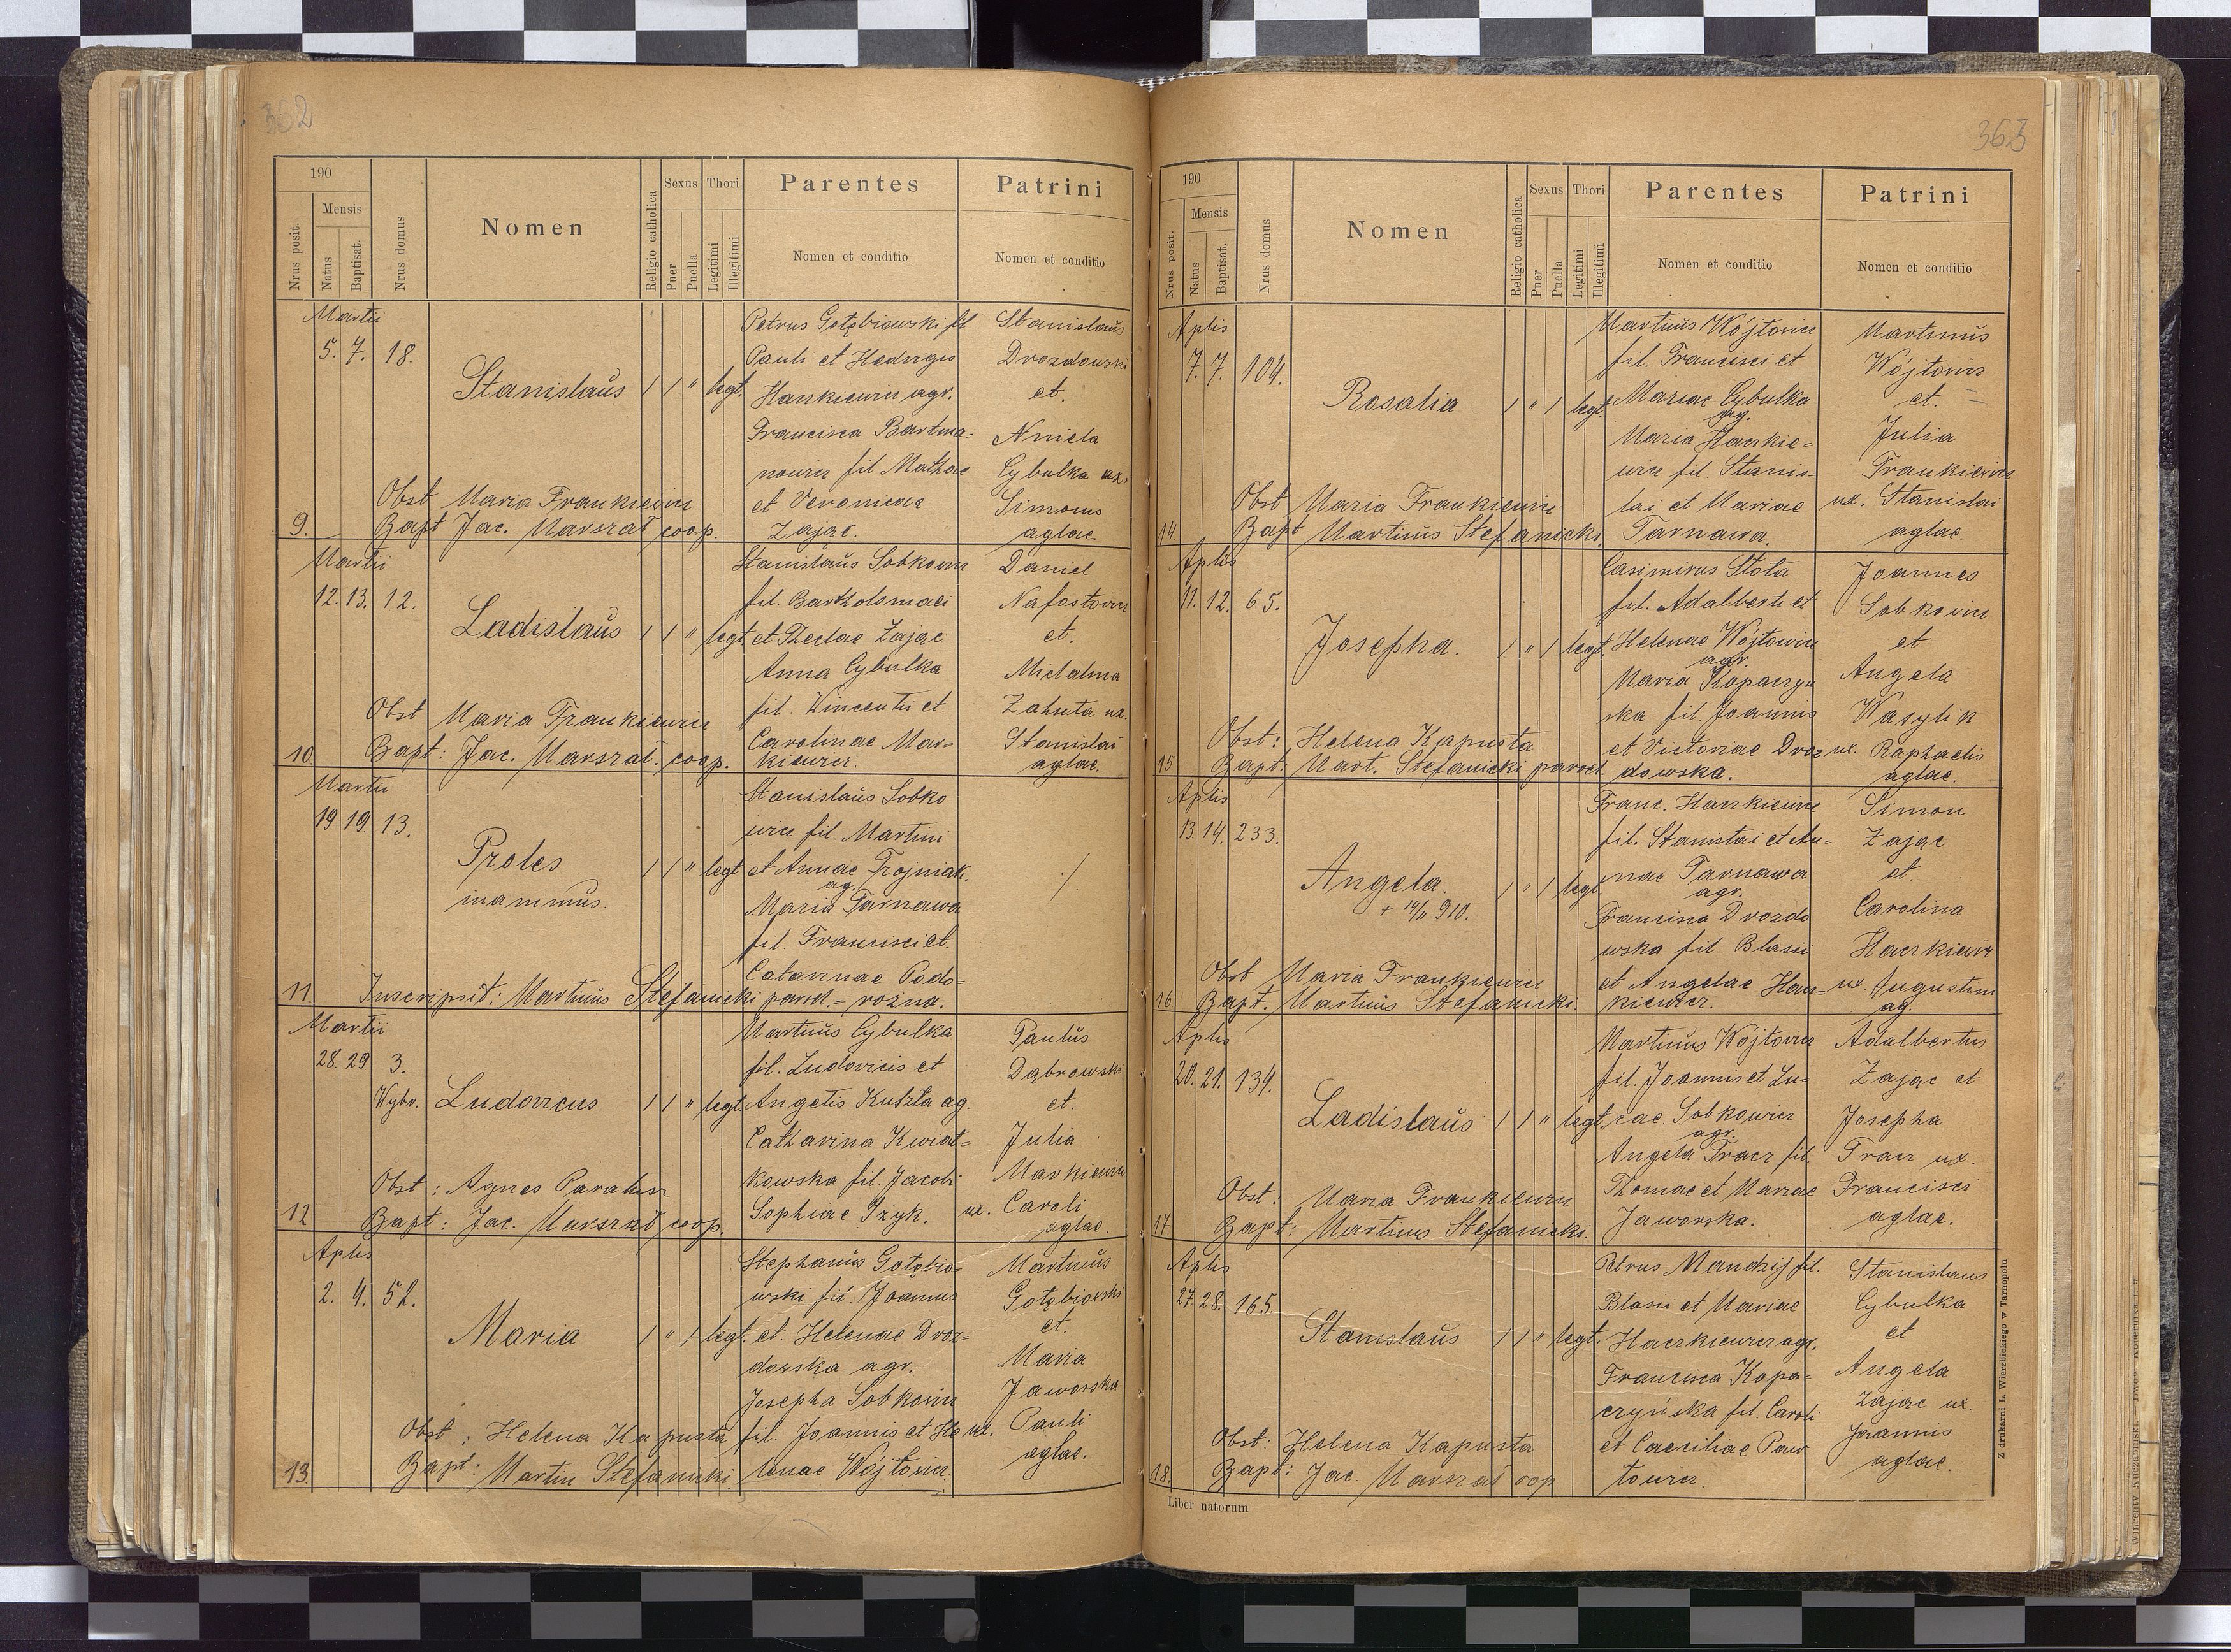 362
190
Nrus posit.
Mensis
Natus
Baptisat.
Nrus domus
Nomen
Religio catholica
Sexus
Puer
Puella
Thori
Legitimi
Illegitimi
Parentes
Nomen et conditio
Patrini
Nomen et conditio
Martii
5. 7. 18.
Stanislaus 1 1 " legt.
Petrus Gołębiowski fil
Pauli et Hedvigis
Hankiewicz agr.
Francisca Bartma-
nowicz fil Mathae
et Veronicae
Zając.
Stanislaus
Drozdowski
et.
Aniela
Cybulka ux.
Simonis
aglae.
Obst Maria Frankiewicz
9. Bapt Jac. Marszał coop.
Martii
12. 13. 12.
Ladislaus 1 1 " legt.
Stanislaus Sobkowicz
fil. Bartholomaei
et Theclae Zając
Anna Cybulka
fil. Vincentii et
Carolinae Mar-
kiewicz.
Daniel
et.
Michalina
Zahuta ux.
Stanislai
aglae.
Obst Maria Frankiewicz
10. Bapt: Jac. Marszał. coop.
Martii
19 19. 13.
Proles
inanimus.
1 1 " legt
Stanislaus Sobko
wicz fil. Martini
et Annae Trojniak.
ag.
Maria Tarnawa
fil. Francisci et.
Catarinae Podo-
rozna.
11. Inscripsit: Martinus Stefanicki paroch.
Martii
28. 29 3.
Wybr. Ludovicus 1 1 " legt.
Martinus Cybulka
fil. Ludovicis et
Angelis Kuszła ag.
Catharina Kwiat-
kowska fil. Jacobi
Sophiae Iżyk.
Paulus
Dąbrowski
et.
Julia
Markiewicz
ux. Caroli
aglae.
Obst: Agnes Paralusz
12 Bapt: Jac. Marszał coop.
Aplis
2. 4. 52.
Maria 1 " 1 legt.
Stephanus Gołębio-
wski fil. Joannis
et. Helenae Droz-
dowska agr.
Josepha Sobkowicz
fil. Joannis et He
lenae Wójtowicz.
Martinus
Gołębiowski
et.
Maria
Jaworska
ux. Pauli
aglae.
Obst: Helena Kapusta
13. Bapt: Martin Stefanicki
363
190
Nrus posit.
Mensis
Natus
Baptisat.
Nrus domus
Nomen
Religio catholica
Sexus
Puer
Puella
Thori
Legitimi
Illegitimi
Parentes
Nomen et conditio
Patrini
Nomen et conditio
Aplis
7. 7. 104.
Rosalia 1 " 1 legt.
Martinus Wójtowicz
fil. Francisci et
Mariae Cybulka
ag.
Maria Haczkie-
wicz fil. Stanis-
lai et Mariae
Tarnawa.
Martinus
Wójtowicz
et.
Julia
Frankiewicz
ux. Stanislai
aglae.
Obst Maria Frankiewicz
14. Bapt Martinus Stefanicki.
Aplis
11. 12. 65.
Josepha. 1 " 1 legt.
Casimirus Słota
fil. Adalberti et
Helenae Wójtowicz
agr.
Maria Kopaczyń
ska fil. Joannis
et Victoriae Droz
dowska.
Joannes
Sobkowicz
et
Angela
Wasylik
ux. Raphaelis
aglae.
Obst: Helena Kapusta
15. Bapt. Mart. Stefanicki paroch.
Aplis
13. 14. 233.
Angela.
+ 14/11 910.
1 " 1 legt.
Franc. Hankiewicz
fil. Stanislai et An-
nae Tarnawa
agr.
Francisca Drozdo
wska fil. Blasii
et Angelae Han-
kiewicz.
Simon
Zając
et.
Carolina
Haczkiewicz
ux. Augustini
ag.
Obst Maria Frankiewicz
16. Bapt. Martinus Stefanicki.
Aplis
20. 21. 134.
Ladislaus 1 1 " legt.
Martinus Wójtowicz
fil. Joannis et Lu-
cae. Sobkowicz
agr.
Angela Tracz fil
Thomae et Mariae
Jaworska.
Adalbertus
Zając et
Josepha
Tracz ux.
Francisci
aglae.
Obst: Maria Frankiewicz
17. Bapt: Martinus Stefanicki.
Aplis
27. 28. 165.
Stanislaus 1 1 " legt.
Petrus Mandzij fil.
Blasii et Mariae
Haczkiewicz agr.
Francisca Kopa-
czyńska fil. Caroli
et Caeciliae Paw
towicz.
Stanislaus
Cybulka
et
Angela
Zając ux.
Joannis
aglae.
Obst: Helena Kapusta
18. Bapt: Jac. Marszał oop
Liber natorum
Z drukarni L. Wierzbickiego w Tarnopolu